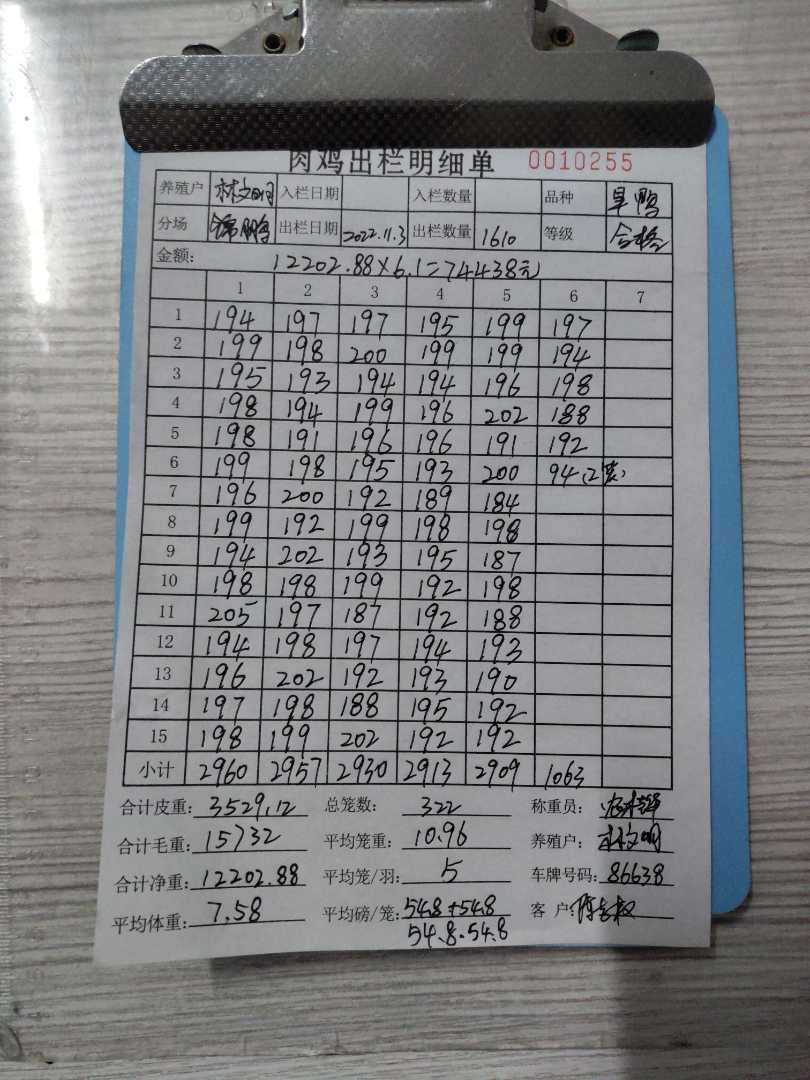 肉鸡出栏明细单 0010255
养殖户 林文明 入栏日期 入栏数量 品种 旱鸭
分场 出栏日期 2022.11.3 出栏数量 1610 等级 合格
金额: 12202.88×6.1=74438元
1 2 3 4 5 6 7
1 194 197 197 195 199 197
2 199 198 200 199 199 194
3 195 193 194 194 196 198
4 198 194 199 196 202 188
5 198 191 196 196 191 192
6 199 198 195 193 200 94(2笼)
7 196 200 192 189 184
8 199 192 199 198 198
9 194 202 193 195 187
10 198 198 199 192 198
11 205 197 187 192 188
12 194 198 197 194 193
13 196 202 192 193 190
14 197 198 188 195 192
15 198 199 202 192 192
小计 2960 2957 2930 2913 2909 1063
合计皮重: 3529.12 总笼数: 322 称重员:
合计毛重: 15732 平均笼重: 10.96 养殖户: 林文明
合计净重: 12202.88 平均笼/羽: 5 车牌号码: 86638
平均体重: 7.58 平均磅/笼: 54.8+54.8 客户:
54.8.54.8